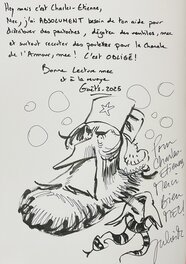 Hey mais c'est Charles-Etienne,
Mec, j'ai ABSOLUMENT besoin de ton aide pour
distribuer des pastoches, dégoter des reubiles, mec
et surtout recruter des poulettes pour la chorale
de l'Armour, mec ! C'est OBLIGÉ !
Bonne Lecture mec
et à la revoyure
2025
Pour
Charles
Etienne
Merci
bien